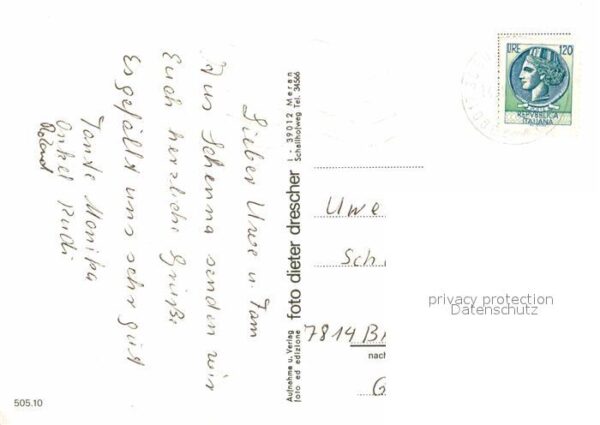 Lieber Uwe u. Tom
Aus Schenna senden wir
Euch herzliche Grüße
Es gefällt uns sehr gut
Tante Monika
Onkel Rudi
Roland
Aufnahme u. Verlag
foto ed edizione
foto dieter drescher
I - 39012 Meran
Schallhofweg Tel. 34566
LIRE 120
REPVBBLICA
ITALIANA
Uwe
Sch
7814 B
nach
G
privacy protection
Datenschutz
505.10